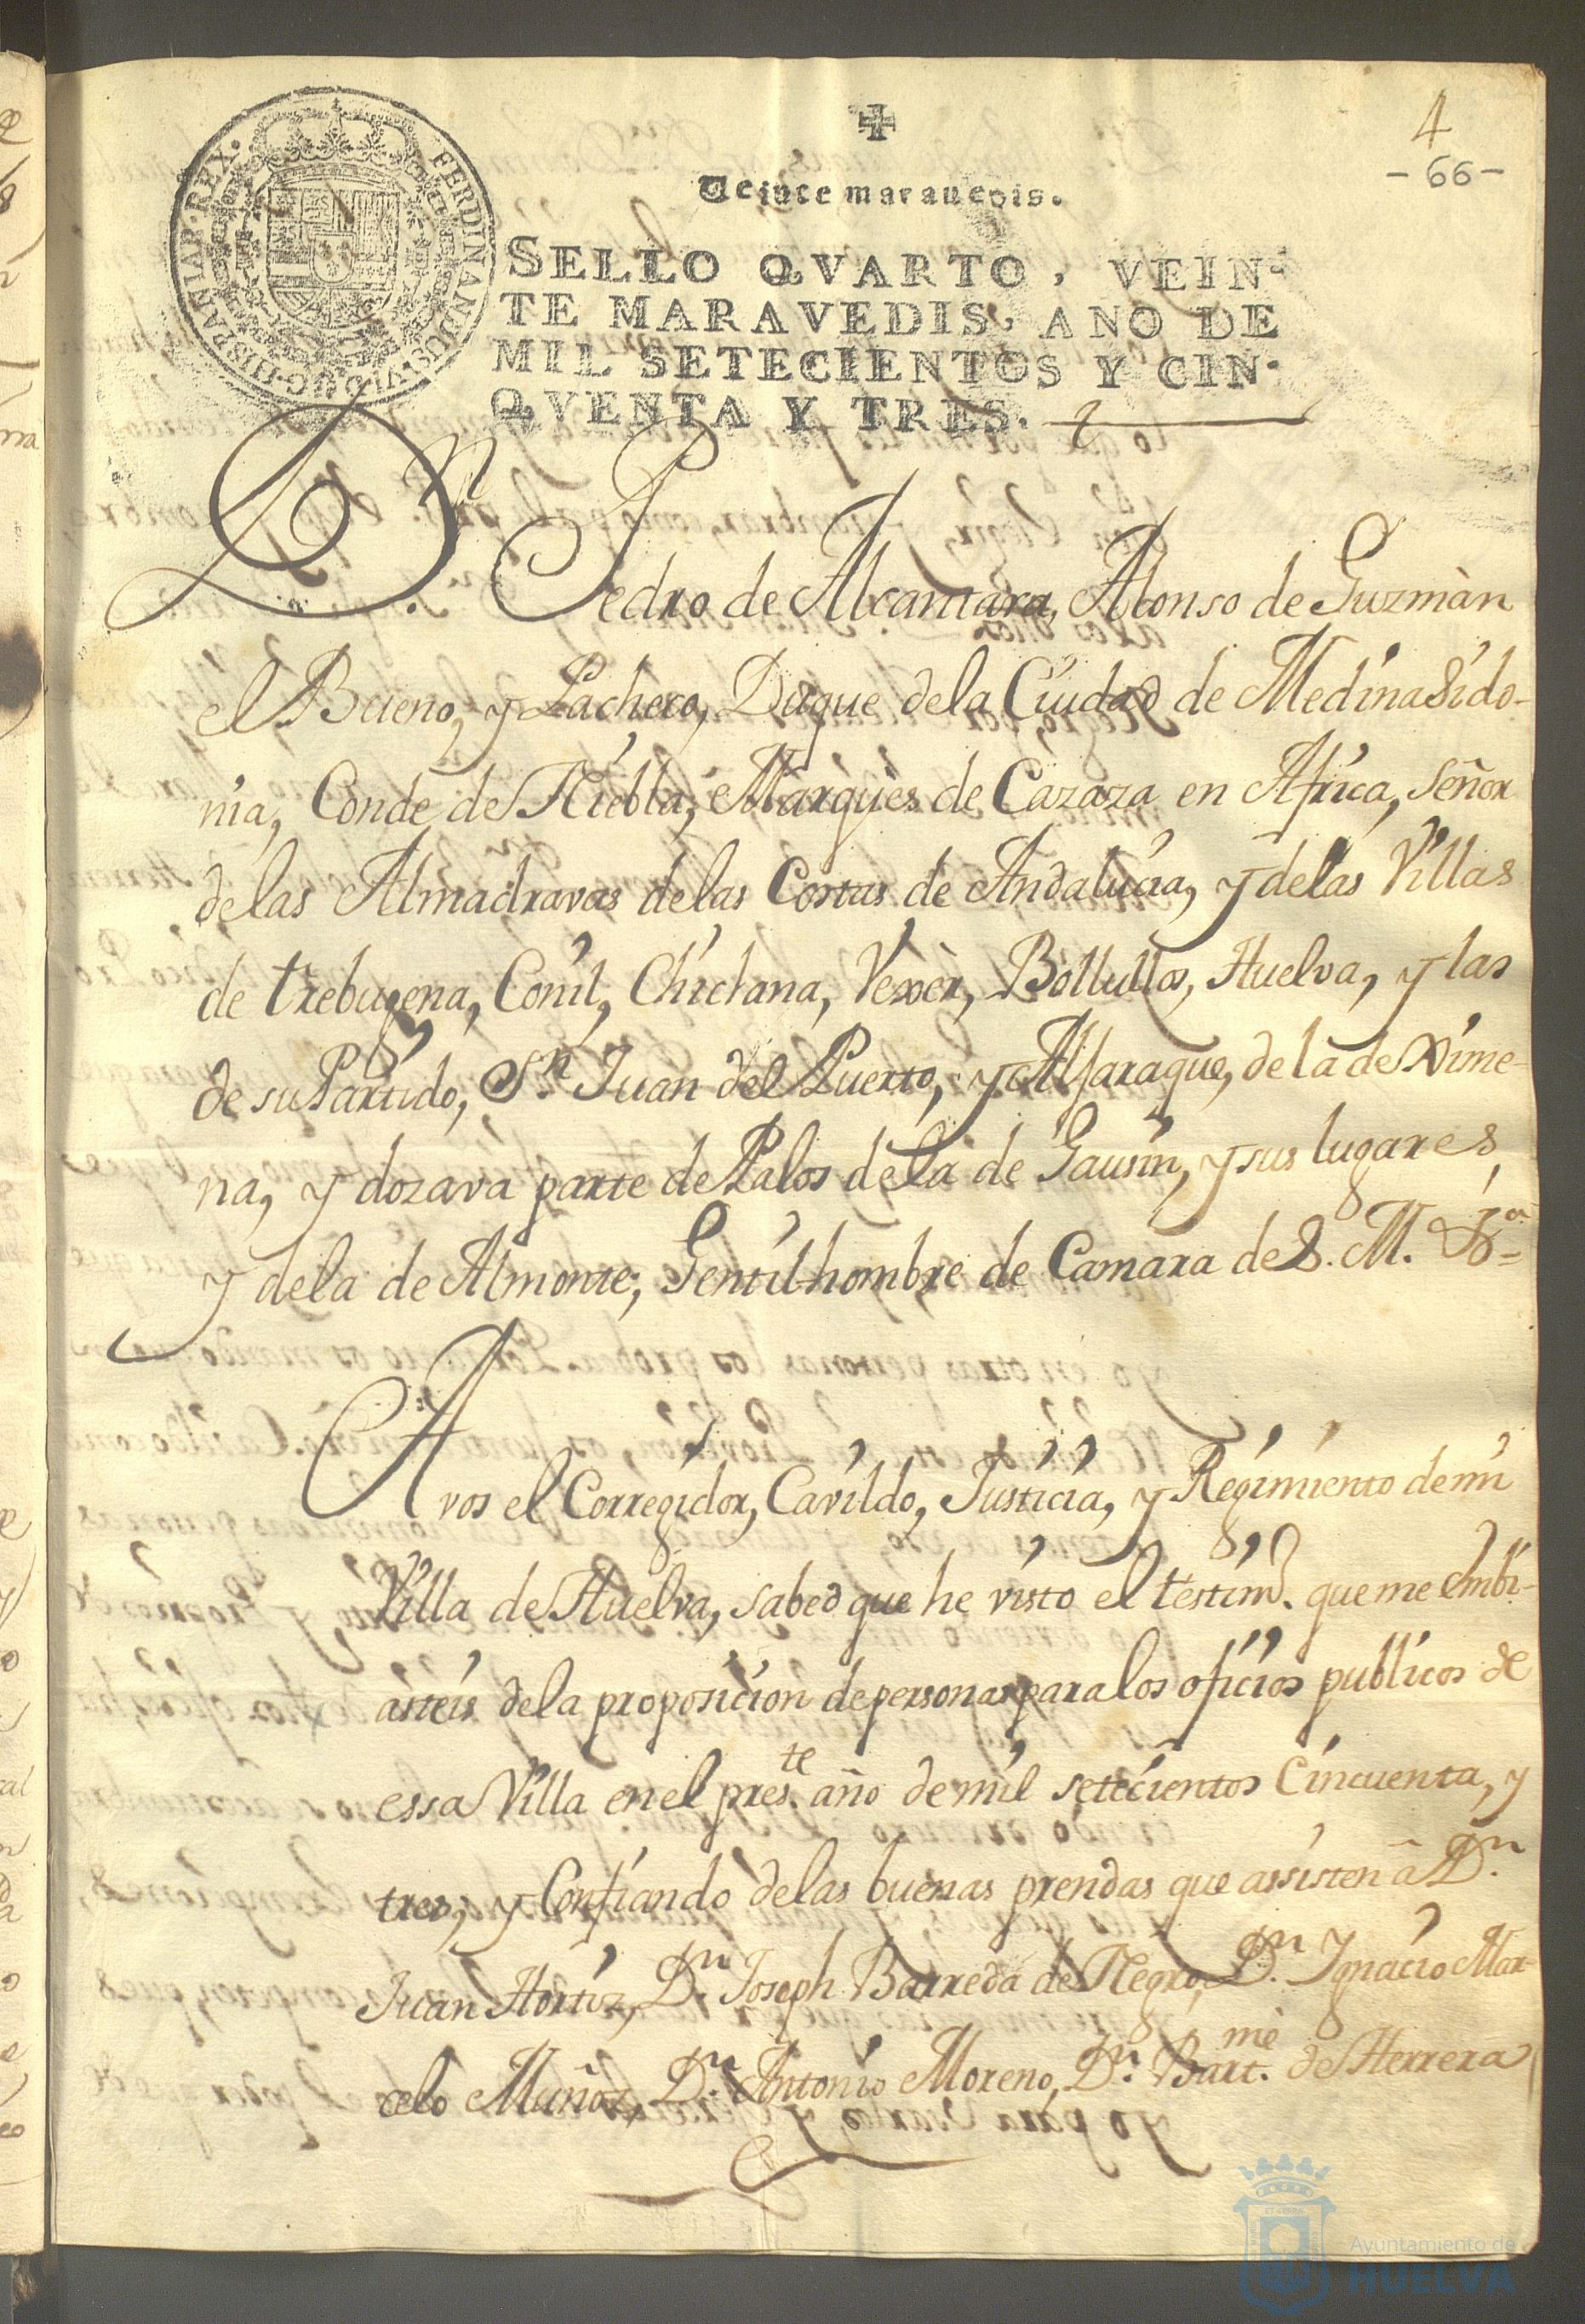 4
- 66 -
✠
Veinte marauedis.
FERDINANDUS·VI·D·G·HISPANIAR·REX·
SELLO QVARTO, VEIN-
TE MARAVEDIS, AÑO DE
MIL SETECIENTOS Y CIN-
QVENTA Y TRES.
Dn. Pedro de Alcantara, Alonso de Guzmàn
el Bueno, y Pacheco, Duque dela Ciudad de Medinasido-
nia, Conde de Niebla, Marquès de Cazaza en Africa, Señor
delas Almadravas delas Costas de Andalucia, y delas Villas
de trebugena, Conil, Chiclana, Vexèr, Bollullos, Huelva, y las
de su Partido, Sn. Juan del Puerto, y Alfaraque, de la de Xime-
na, y dozava parte de Palos dela de Gausin, y sus lugares,
y dela de Almonte; Gentilhombre de Camara de S. M. &a
A vos el Corregidor, Cavildo, Justicia, y Regimiento de mi
Villa de Huelva, sabed que he visto el testimo. que me embi-
asteis dela proposicion de personas para los oficios publicos de
essa Villa en el preste. año de mil setecientos Cincuenta, y
tres, y Confiando delas buenas prendas que assisten à Dn.
Juan Hortiz, Dn. Joseph Barreda de Negro, Dn. Ygnacio Mar-
celo Muñoz, Dn. Antonio Moreno, Dn. Bartme. de Herrera
Ayuntamiento de
HUELVA